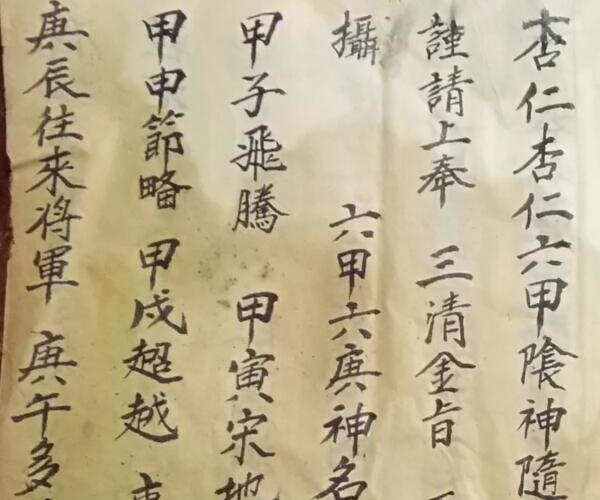 杏仁杏仁六甲陰神隨
謹請上奉 三清金旨
攝 六甲六庚神名
甲子飛騰 甲寅宗地
甲申節略 甲戌超越
庚辰往來将軍 庚午多